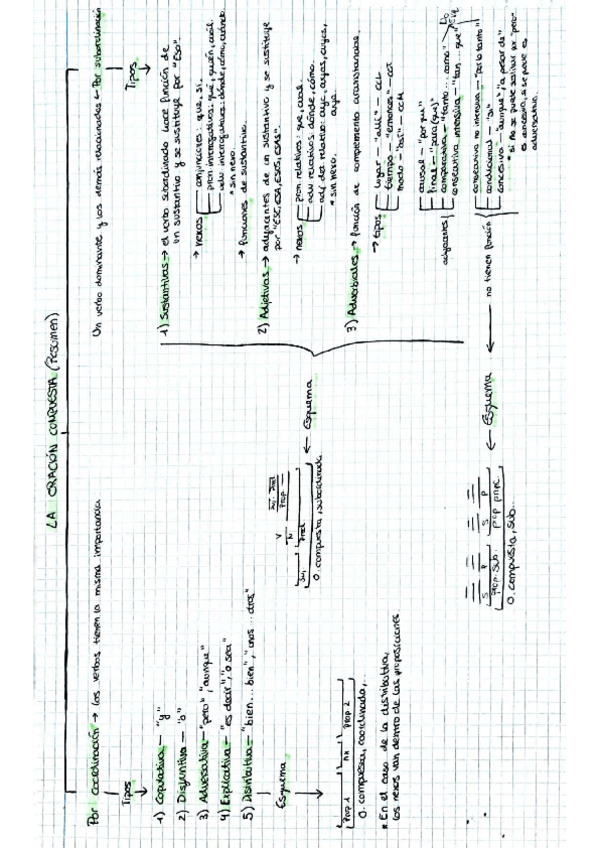 LA ORACIÓN COMPUESTA (Resumen)
Por Coordinación → los verbos tienen la misma importancia
Tipos
1) Copulativa — "y"
2) Disyuntiva — "o"
3) Adversativa — "pero", "aunque"
4) Explicativa — "es decir", "o sea"
5) Distributiva — "bien... bien", "unos... otros"
Esquema
Prop 1 nx Prop 2
O. compuesta, coordinada,...
* En el caso de la distributiva,
los nexos van dentro de las proposiciones
Un verbo dominante y los demás relacionados ← Por subordinación
Tipos
1) Sustantivas → el verbo subordinado hace función de
un sustantivo y se sustituye por "Eso"
→ nexos
conjunciones: que, si.
pron interrogativos: qué, quién, cuál.
adv interrogativos: dónde, cómo, cuándo.
* sin nexo.
→ funciones de sustantivo.
2) Adjetivas → adyacentes de un sustantivo y se sustituye
por "ESE, ESA, ESOS, ESAS".
→ nexos
pron relativos: que, cual.
adv relativos: dónde, cómo.
adj det relativo: cuyo, cuyas, cuyos,
cuya
* sin nexo.
3) Adverbiales → función de complemento circunstancial.
→ tipos
lugar — "allí" — CCL
tiempo — "entonces" — CCT
modo — "así" — CCM
causal — "porque"
final — "para (que)"
adyacentes
comparativa — "tanto... como"
consecutiva intensiva — "tan... que"
← Esquema
V
N
Suj
Pred
Prop
O. compuesta, subordinada.
no tienen función
consecutiva no intensiva — "por lo tanto"
condicional — "si"
concesiva — "aunque", "a pesar de"
* si no se puede sustituir por "pero"
es concesiva, si se puede es
adversativa.
← Esquema
S P S P
Prop. sub. prop princ.
O. compuesta, sub...